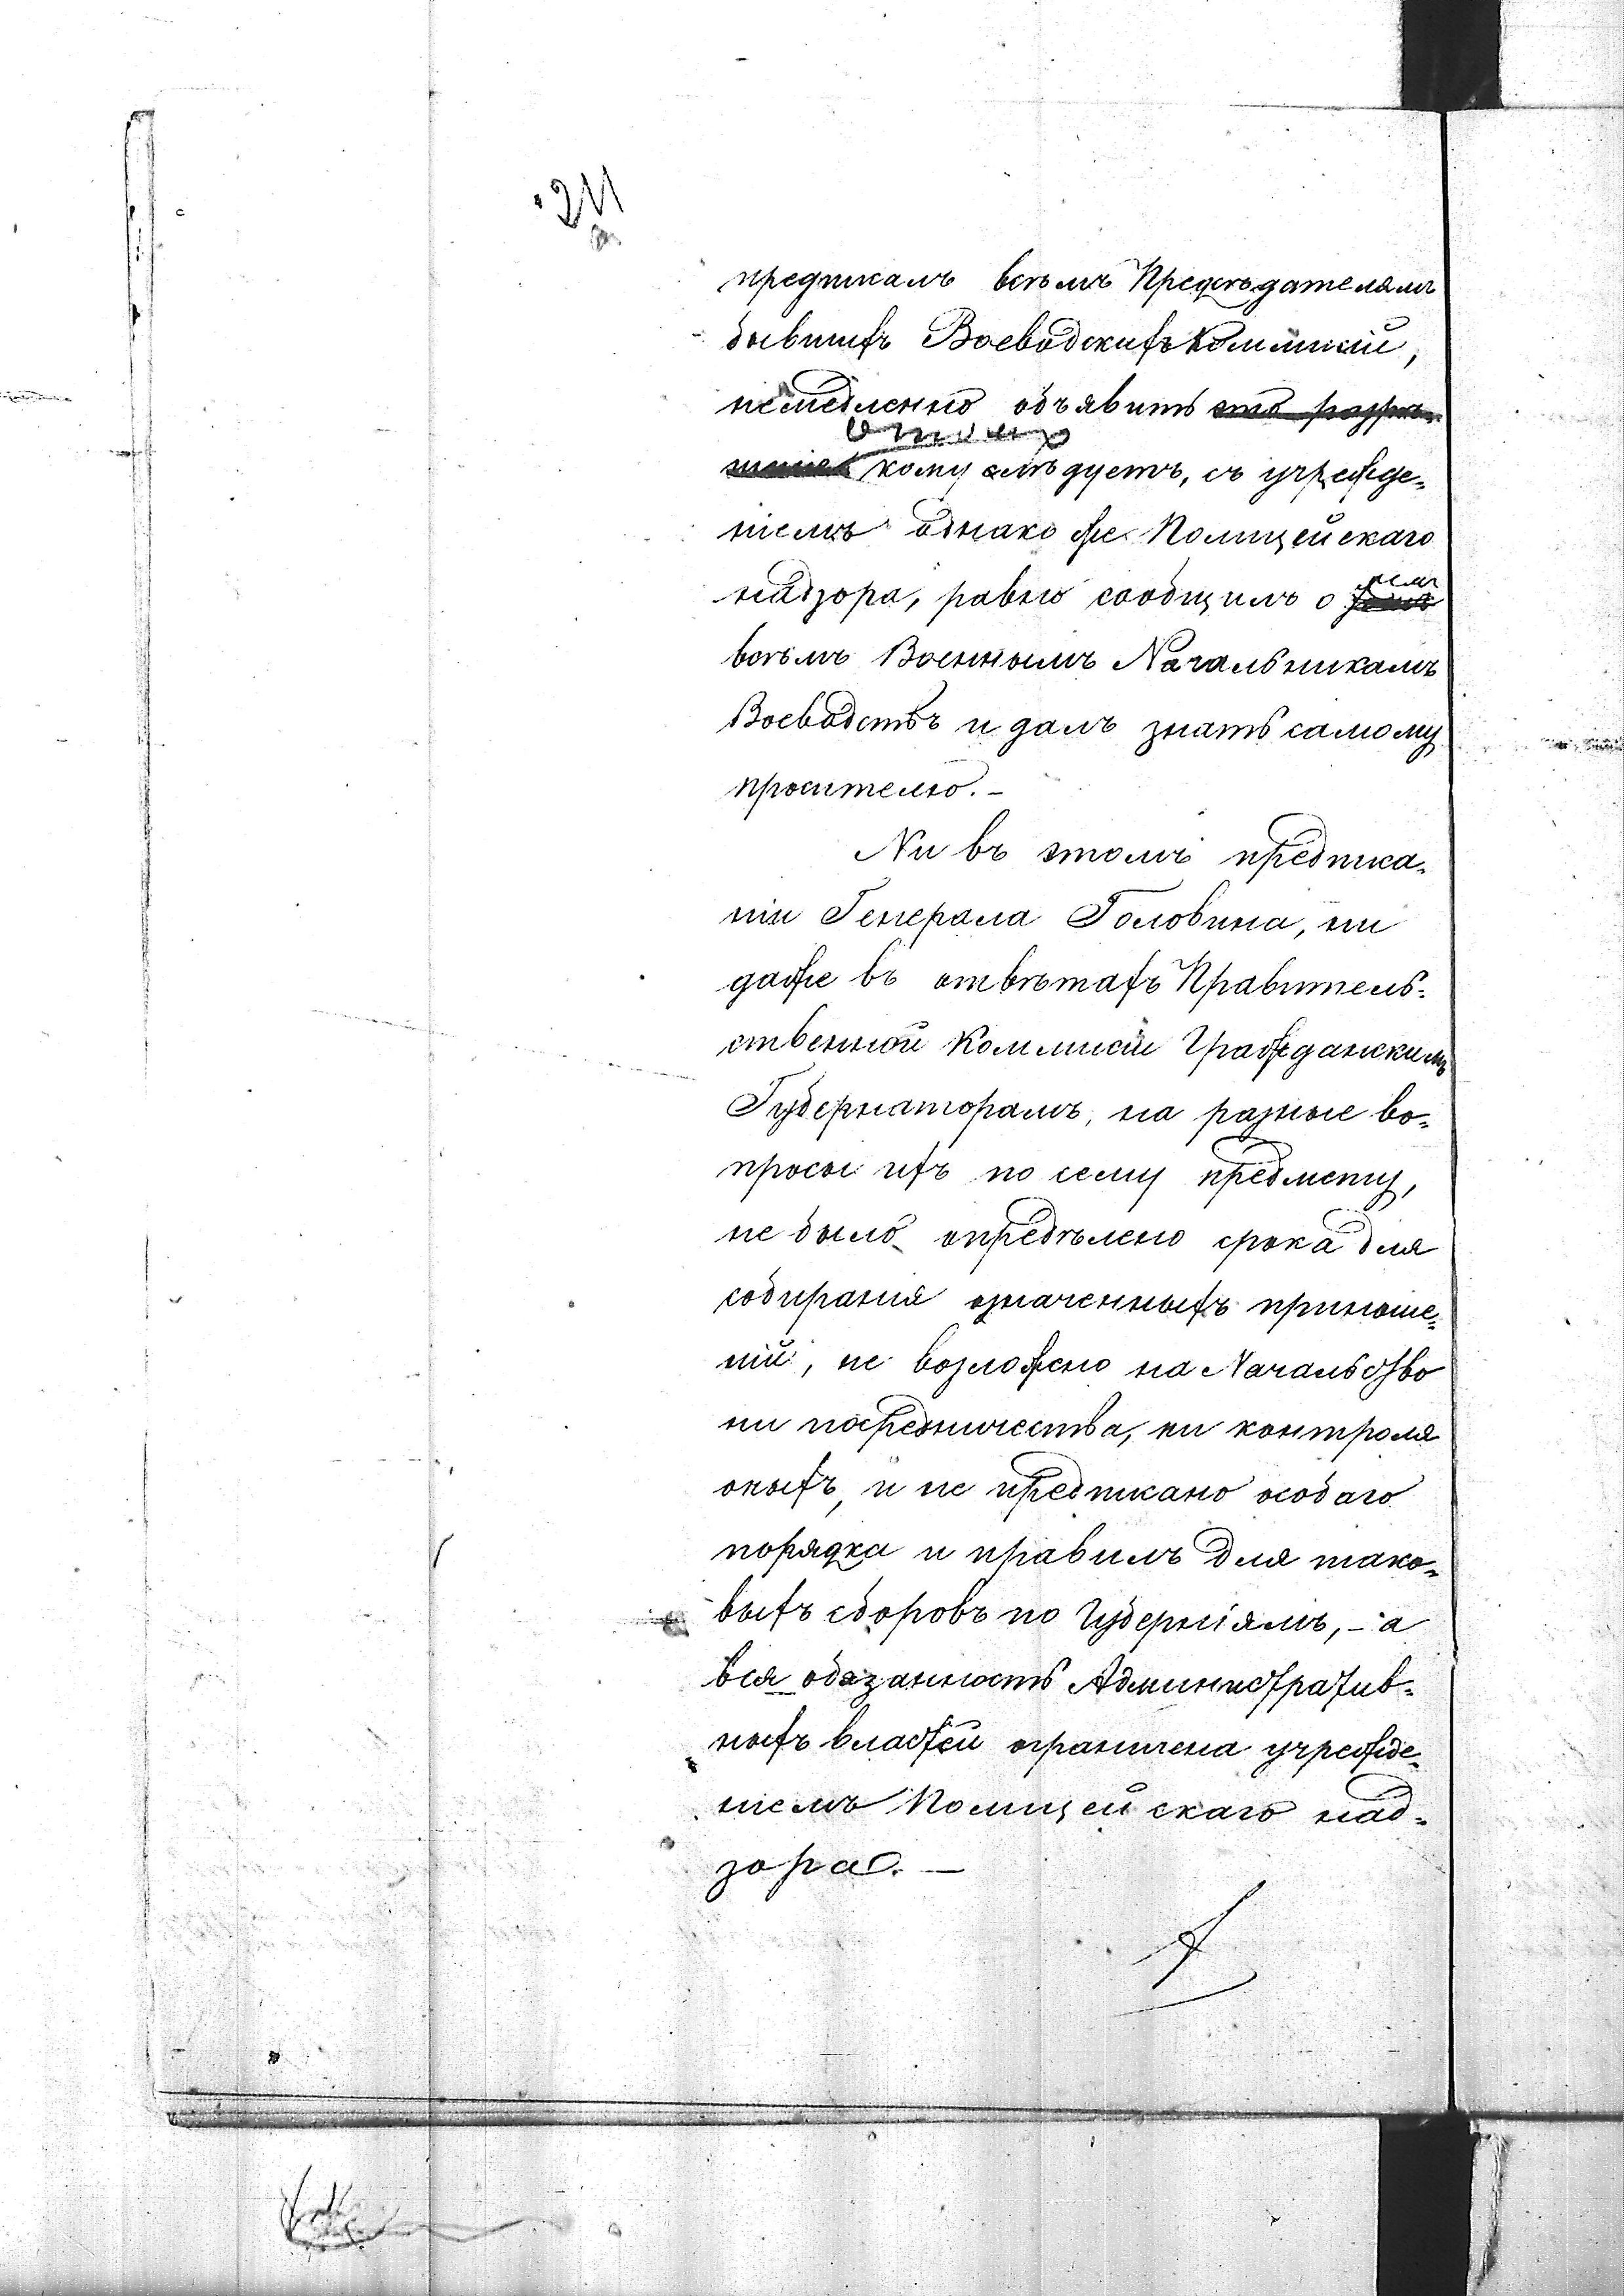 211
предписалъ всѣмъ Предсѣдателямъ
бывшихъ Воеводскихъ Коммисій,
немедленно объявить это разрѣ-
о томъ
шеніе кому слѣдуетъ, съ учрежде=
ніемъ однако же Полицейскаго
надзора, равно сообщилъ о семъ
всѣмъ Военнымъ Начальникамъ
Воеводствъ и далъ знать самому
просителю. –
Ни въ этомъ предписа=
ніи Генерала Головина, ни
даже въ отвѣтахъ Правитель=
ственной Коммисіи Гражданскимъ
Губернаторамъ, на разные во=
просы ихъ по сему предмету,
не было опредѣлено срока для
собиранія означенныхъ приноше=
ній, не возложено на Начальство
ни посредничества, ни контроля
оныхъ, и не предписано особаго
порядка и правилъ для тако=
выхъ сборовъ по Губерніямъ, – а
вся обязанность Административ=
ныхъ властей ограничена учрежде=
ніемъ Полицейскаго над=
зора. –